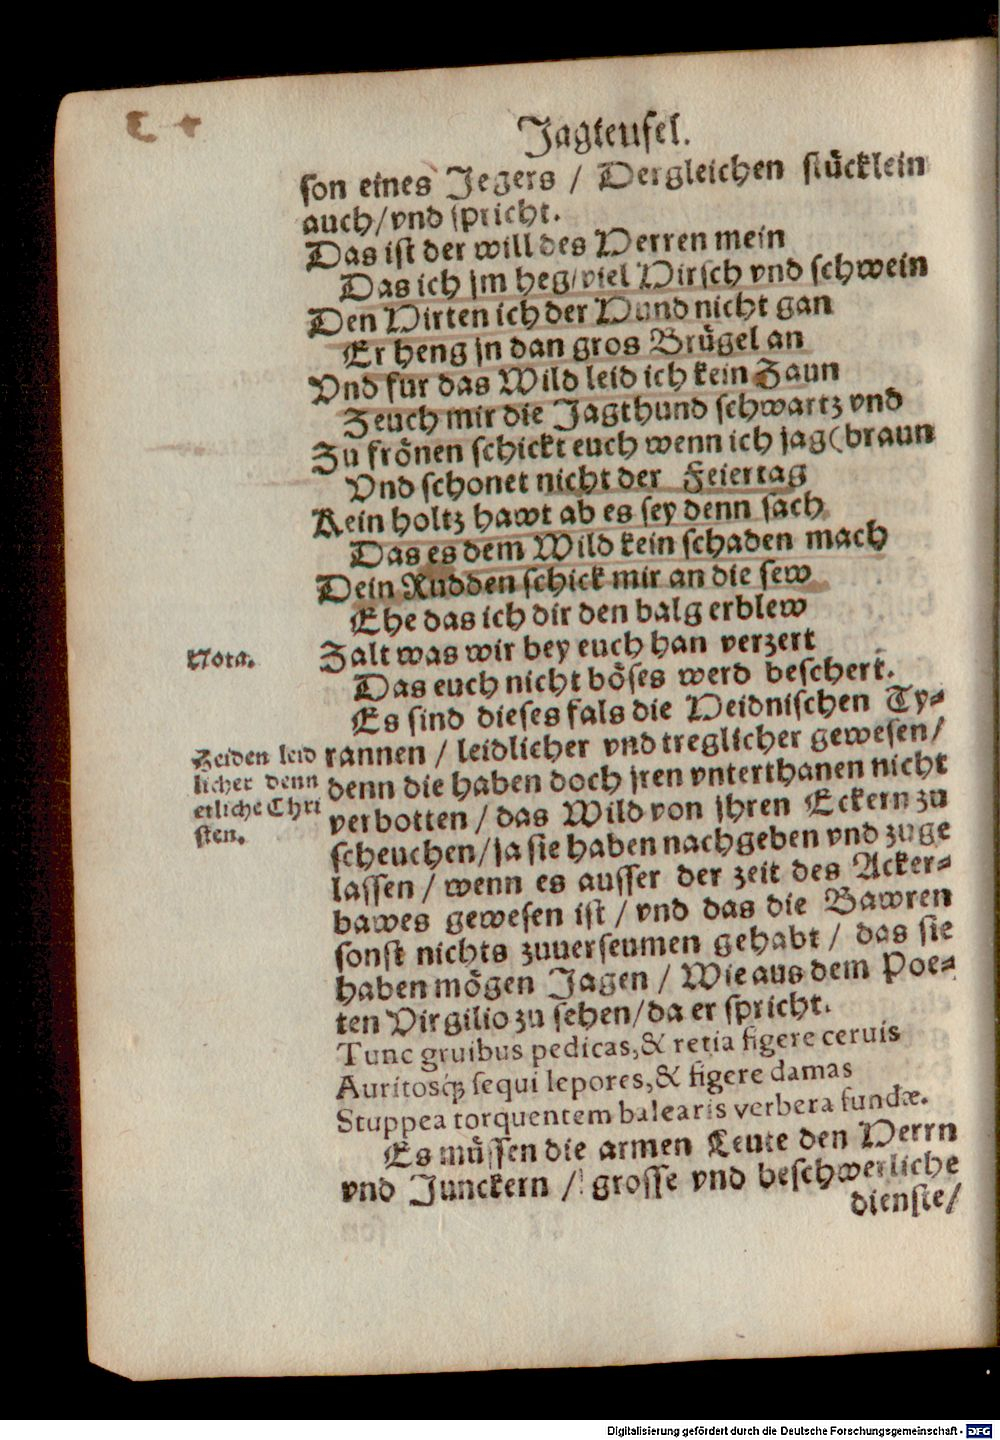 Jagteufel.
son eines Jegers / Dergleichen stücklein
auch/vnd spricht.
Das ist der will des Herren mein
Das ich jm heg/viel Hirsch vnd schwein
Den Hirten ich der Hund nicht gan
Er heng jn dan gros Brügel an
Vnd fur das Wild leid ich kein Zaun
Zeuch mir die Jagthund schwartz vnd
Zu frönen schickt euch wenn ich jag(braun
Vnd schonet nicht der Feiertag
Kein holtz hawt ab es sey denn sach
Das es dem Wild kein schaden mach
Dein Rudden schick mir an die sew
Ehe das ich dir den balg erblew
Nota.
Zalt was wir bey euch han verzert
Das euch nicht böses werd beschert.
Es sind dieses fals die Heidnischen Ty-
Heiden leid
licher denn
etliche Chri
sten.
rannen / leidlicher vnd treglicher gewesen/
denn die haben doch jren vnterthanen nicht
verbotten / das Wild von jhren Eckern zu
scheuchen/ja sie haben nachgeben vnd zuge
lassen / wenn es ausser der zeit des Acker-
bawes gewesen ist / vnd das die Bawren
sonst nichts zuuerseumen gehabt / das sie
haben mögen Jagen / Wie aus dem Poe-
ten Virgilio zu sehen/da er spricht.
Tunc gruibus pedicas,& retia figere ceruis
Auritosq́; sequi lepores,& figere damas
Stuppea torquentem balearis verbera fundæ.
Es müssen die armen Leute den Herrn
vnd Junckern / grosse vnd beschwerliche
dienste/
Digitalisierung gefördert durch die Deutsche Forschungsgemeinschaft - DFG